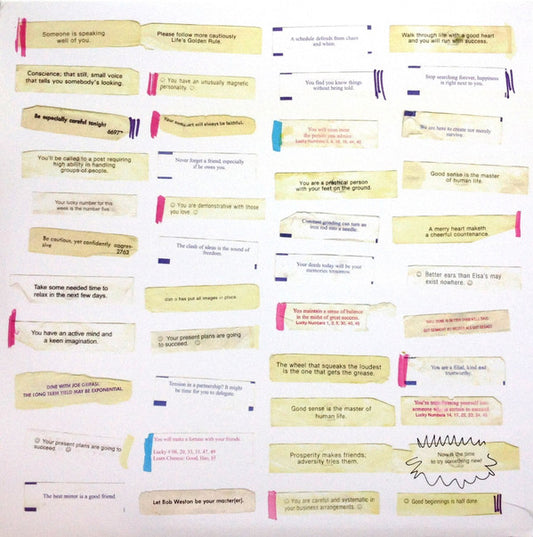 Someone is speaking
well of you.
Conscience; that still, small voice
that tells you somebody's looking.
Be especially careful tonight
6697
You'll be called to a post requiring
high ability in handling
groups of people.
Your lucky number for this
week is the number five.
Be cautious, yet confidently aggres-
sive
2762
Take some needed time to
relax in the next few days.
You have an active mind and
a keen imagination.
DINE WITH JOE
THE LONG TERM YIELD MAY BE EXPONENTIAL.
☺ Your present plans are going
to succeed. ☺
The best mirror is a good friend.
Please follow more cautiously
Life's Golden Rule.
☺ You have an unusually magnetic
personality. ☺
Your sweetheart will always be faithful.
Never forget a friend, especially
if he owes you.
☺ You are demonstrative with those
you love. ☺
The clash of ideas is the sound of
freedom.
has put all images in place.
☺ Your present plans are going
to succeed. ☺
Tension in a partnership? It might
be time for you to delegate.
You will make a fortune with your friends
Lucky # 08, 20, 33, 35, 47, 49
Learn Chinese: Good, Hao, 85
Let Bob Weston be your master(er).
A schedule defends from chaos
and whim.
You find you know things
without being told.
You will soon meet
the person you admire.
Lucky Numbers
You are a practical person
with your feet on the ground.
Constant grinding can turn an
iron rod into a needle.
Your deeds today will be your
memories tomorrow.
You maintain a sense of balance
in the midst of great success.
Lucky Numbers 1, 2, 5, 30, 40, 49
The wheel that squeaks the loudest
is the one that gets the grease.
Good sense is the master of
human life.
Prosperity makes friends;
adversity tries them.
☺ You are careful and systematic in
your business arrangements. ☺
Walk through life with a good heart
and you will run with success.
Stop searching forever, happiness
is right next to you.
We are here to create not merely
survive.
Good sense is the master
of human life.
A merry heart maketh
a cheerful countenance.
☺ Better ears than Elsa's may
exist nowhere. ☺
You are a filial, kind and
trustworthy.
You're transforming yourself into
someone who is certain to succeed.
Lucky Numbers 14, 11, 22, 23, 24, 43
Now is the time
to try something new!
☺ Good beginnings is half done.